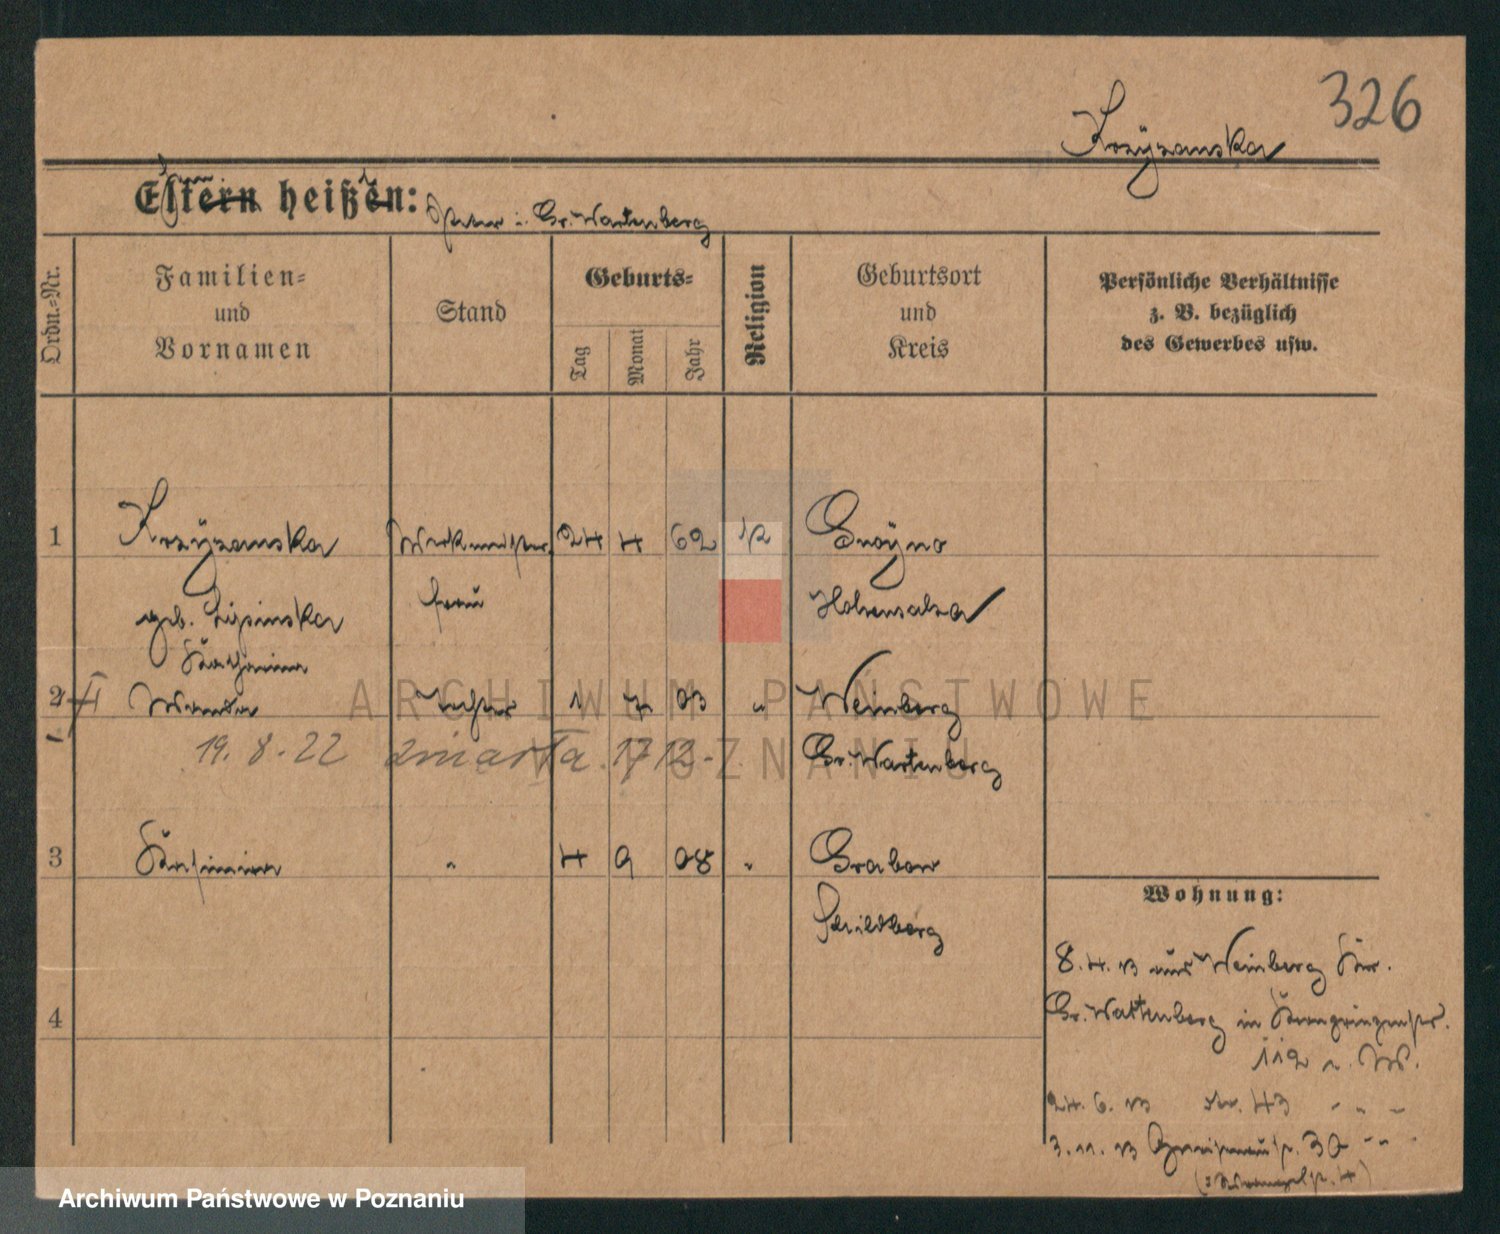 326
Krzyżanska
Eltern heißen:
Gr. Wartenberg
Ordn.-Nr.
Familien-
und
Vornamen
Stand
Geburts-
Tag
Monat
Jahr
Religion
Geburtsort
und
Kreis
Persönliche Verhältnisse
z. B. bezüglich
des Gewerbes usw.
1 Krzyżanska Werkmeister 24 4 62 Gnoyno
geb. Lipinska frau Hohensalza
Katharina
2 II Wanda Tochter 1 7 03 " Weinberg
19.8.22 zmarła 1712- Gr. Wartenberg
3 Kasimira " 4 9 08 " Grabow
Schildberg
4
Wohnung:
8.4.13 aus Weinberg Kr.
Gr. Wartenberg in Kronprinzenstr.
112 W.
24.6.13 43 " " "
3.11.13 Gneisenaustr. 30 " "
ARCHIWUM PAŃSTWOWE
W POZNANIU
Archiwum Państwowe w Poznaniu